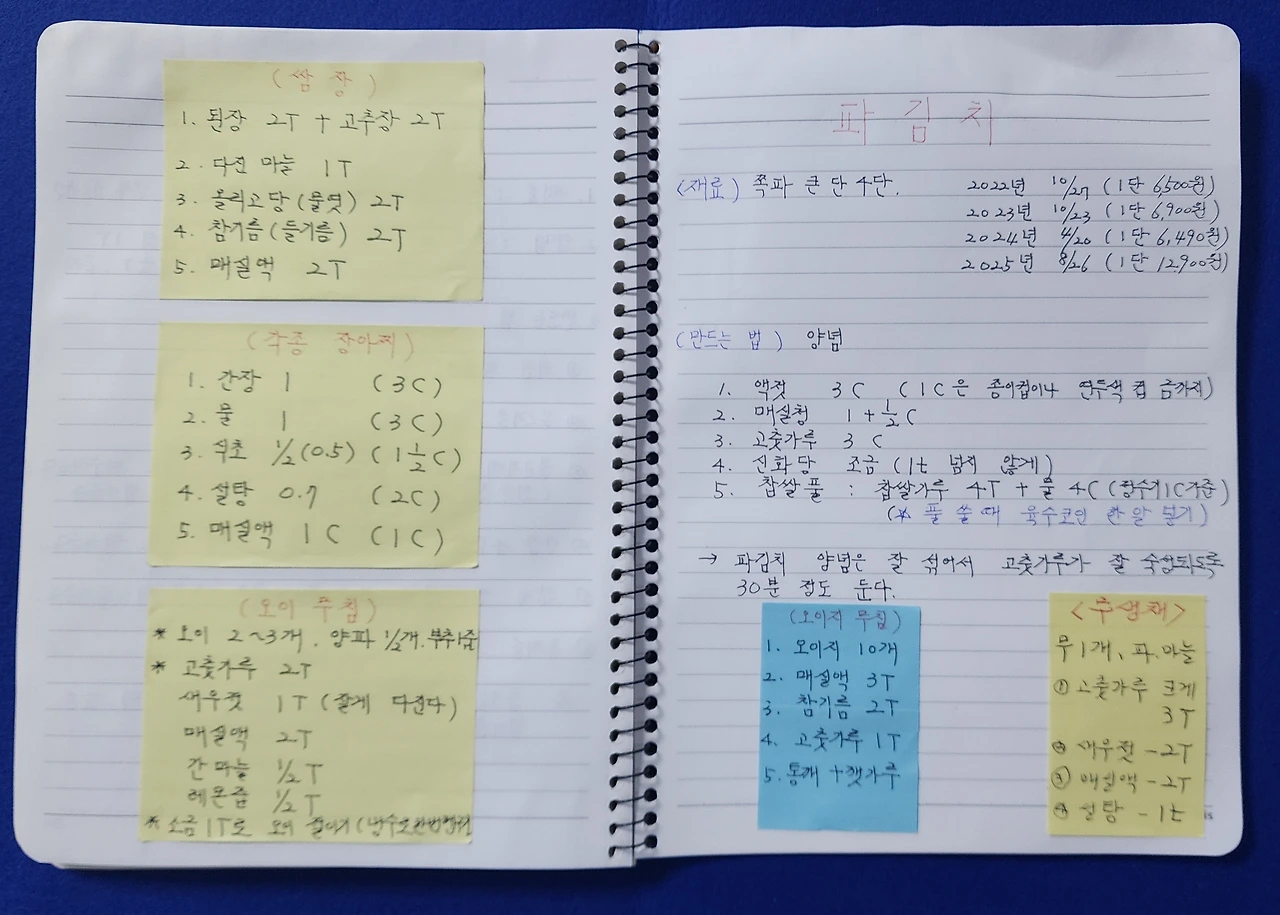 (쌈 장)
1. 된장 2T + 고추장 2T
2. 다진 마늘 1T
3. 올리고당(물엿) 2T
4. 참기름(들기름) 2T
5. 매실액 2T
(각종 장아찌)
1. 간장 1 (3C)
2. 물 1 (3C)
3. 식초 1/2(0.5) (1 1/2 C)
4. 설탕 0.7 (2C)
5. 매실액 1C (1C)
(오이 무침)
* 오이 2~3개. 양파 1/2개. 부추1줌
* 고춧가루 2T
새우젓 1T (잘게 다진다)
매실액 2T
간마늘 1/2T
레몬즙 1/2T
* 소금 1T로 오이 절이기
파 김 치
(재료) 쪽파 큰 단 4단.
2022년 10/27 (1단 6,500원)
2023년 10/23 (1단 6,900원)
2024년 4/20 (1단 6,490원)
2025년 8/26 (1단 12,900원)
(만드는 법) 양념
1. 액젓 3C (1C은 종이컵이나 연두색 컵 금까지)
2. 매실청 1+1/2C
3. 고춧가루 3C
4. 신화당 조금 (1t 넘지 않게)
5. 찹쌀풀 : 찹쌀가루 4T + 물 4C (정수기1C기준)
(* 풀 쑬 때 육수코인 한 알 넣기)
→ 파김치 양념은 잘 섞어서 고춧가루가 잘 숙성되도록
30분 정도 둔다.
(오이지 무침)
1. 오이지 10개
2. 매실액 3T
3. 참기름 2T
4. 고춧가루 1T
5. 통깨 + 깻가루
<무생채>
무1개, 파.마늘
① 고춧가루 크게
3T
② 새우젓 - 2T
③ 매실액 - 2T
④ 설탕 - 1t